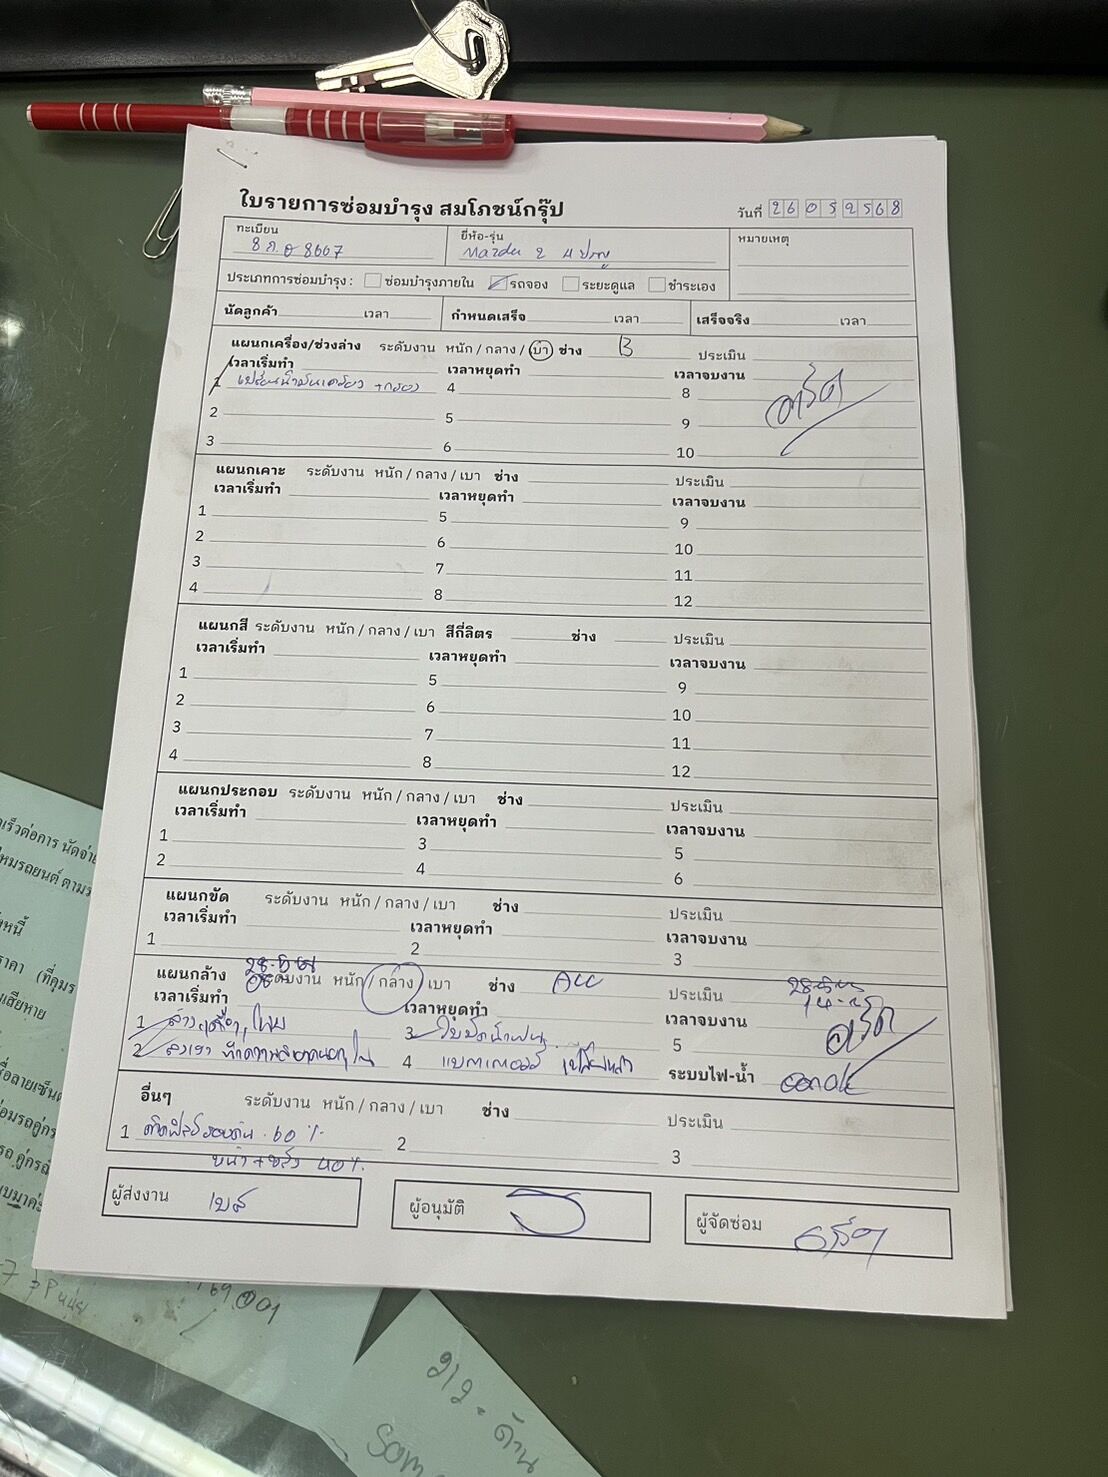 ใบรายการซ่อมบำรุง สมโภชน์กรุ๊ป
วันที่ 26052568
ทะเบียน
8607
ยี่ห้อ-รุ่น
Mazda 2 4 ประตู
หมายเหตุ
ประเภทการซ่อมบำรุง : ซ่อมบำรุงภายใน รถจอง ระยะดูแล ชำระเอง
นัดลูกค้า เวลา กำหนดเสร็จ เวลา เสร็จจริง เวลา
แผนกเครื่อง/ช่วงล่าง ระดับงาน หนัก / กลาง / เบา ช่าง B ประเมิน
เวลาเริ่มทำ เวลาหยุดทำ เวลาจบงาน
1 เปลี่ยนน้ำมันเครื่อง +กรอง 4 8
2 5 9
3 6 10
แผนกเคาะ ระดับงาน หนัก / กลาง / เบา ช่าง ประเมิน
เวลาเริ่มทำ เวลาหยุดทำ เวลาจบงาน
1 5 9
2 6 10
3 7 11
4 8 12
แผนกสี ระดับงาน หนัก / กลาง / เบา สีกี่ลิตร ช่าง ประเมิน
เวลาเริ่มทำ เวลาหยุดทำ เวลาจบงาน
1 5 9
2 6 10
3 7 11
4 8 12
แผนกประกอบ ระดับงาน หนัก / กลาง / เบา ช่าง ประเมิน
เวลาเริ่มทำ เวลาหยุดทำ เวลาจบงาน
1 3 5
2 4 6
แผนกขัด ระดับงาน หนัก / กลาง / เบา ช่าง ประเมิน
เวลาเริ่มทำ เวลาหยุดทำ เวลาจบงาน
1 2 3
แผนกล้าง ระดับงาน หนัก / กลาง / เบา ช่าง ประเมิน
เวลาเริ่มทำ เวลาหยุดทำ เวลาจบงาน
1 3 ใบปัดน้ำฝน 5
2 4 แบตเตอรี่ ระบบไฟ-น้ำ
อื่นๆ ระดับงาน หนัก / กลาง / เบา ช่าง ประเมิน
1 ติดฟิล์มรอบคัน 60 % 2 3
หน้า + หลัง 40 %
ผู้ส่งงาน เบส ผู้อนุมัติ ผู้จัดซ่อม